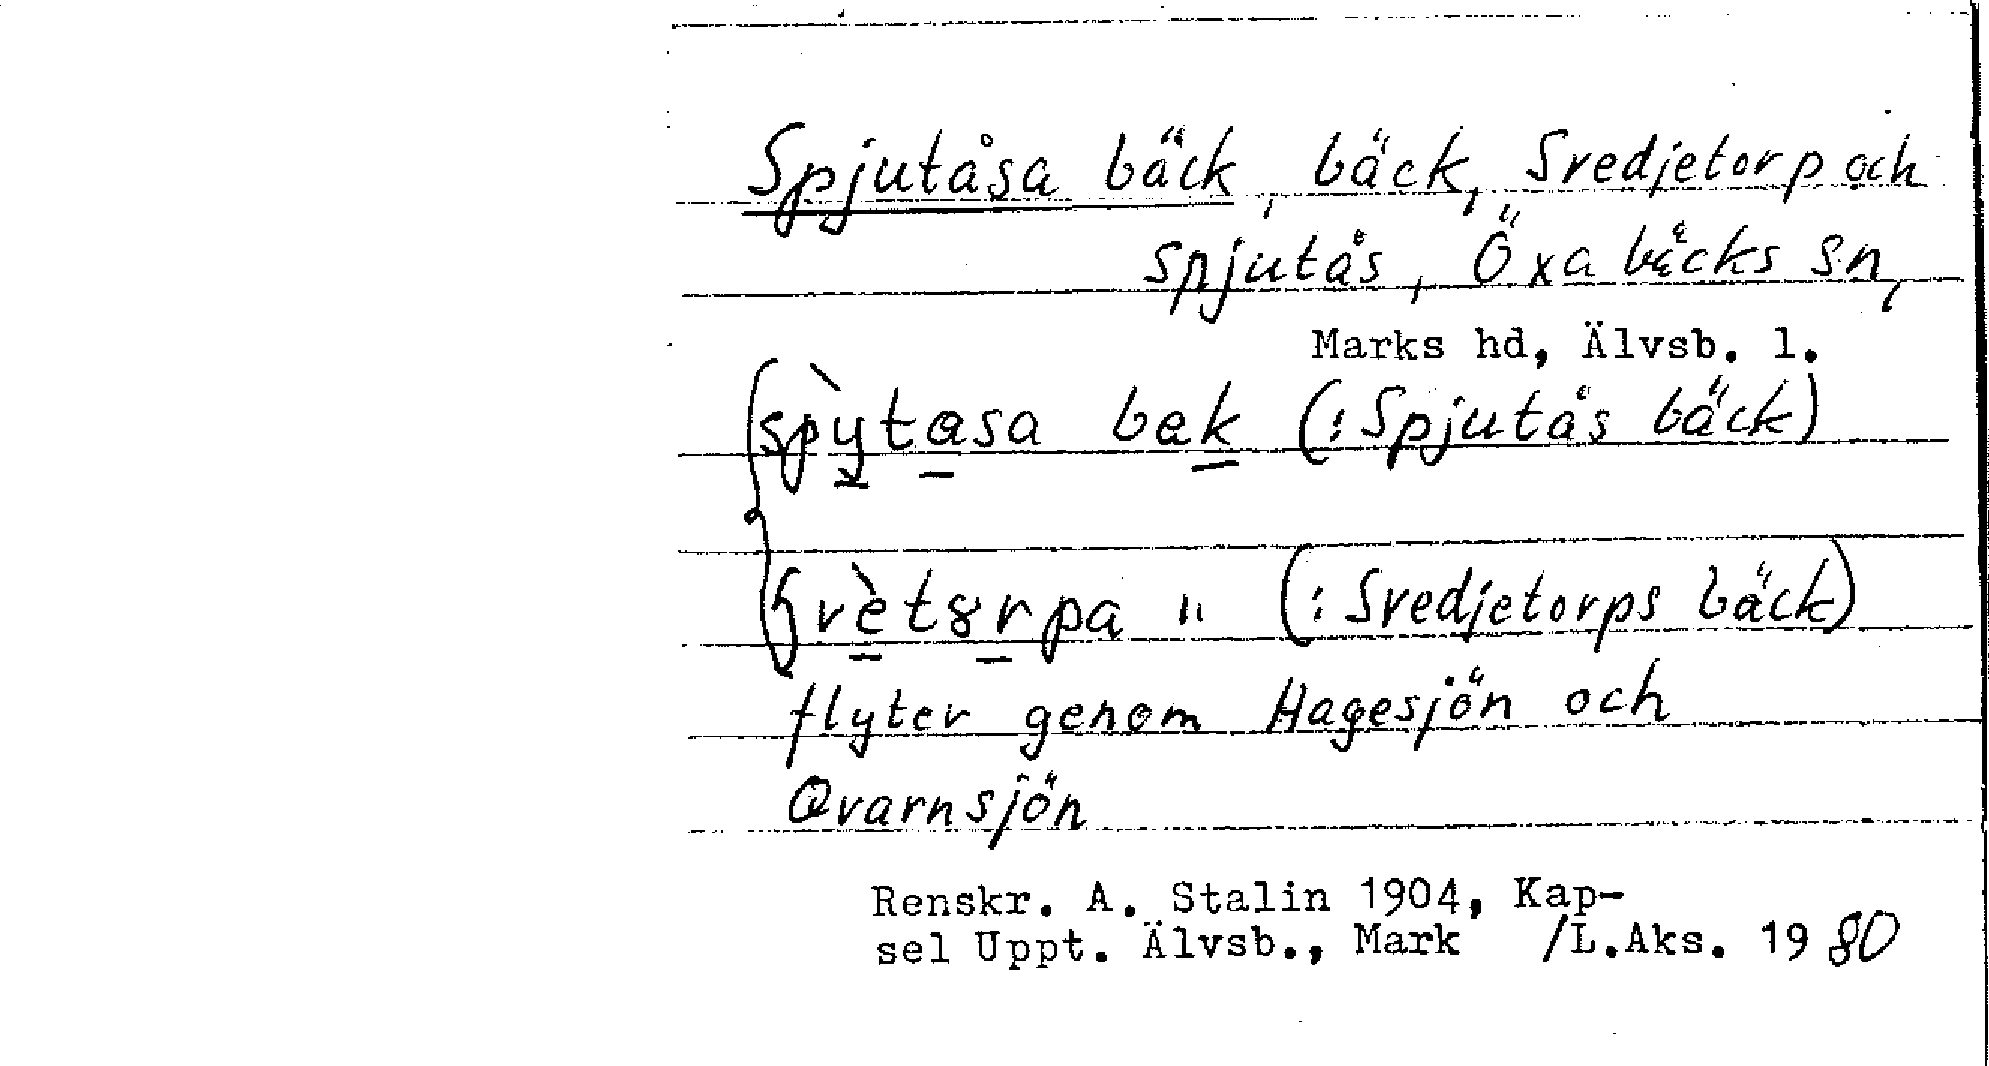 Spjutåsa bäck, bäck, Sredjetorp och
Spjutås, Öxabäcks sn,
Marks hd, Älvsb. l.
spỳtasa bek (: Spjutås bäck)
vètȣrpa " (: Sredjetorps bäck)
flyter genom Hagesjön och
Qvarnsjön
Renskr. A. Stalin 1904, Kap-
sel Uppt. Älvsb., Mark /L.Aks. 1980